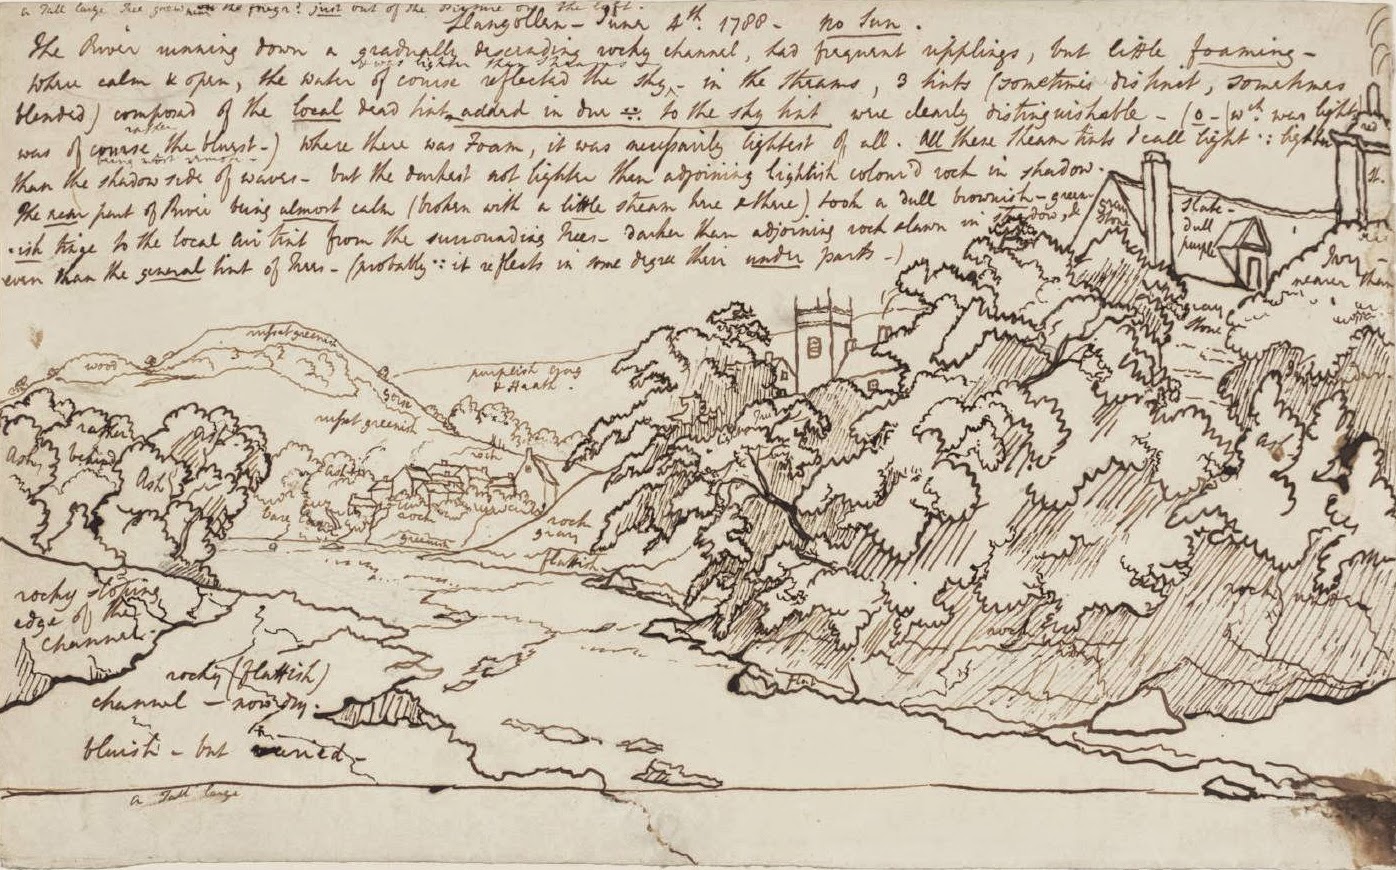 a Tall large Tree grows near the foregr: just out of the Picture on the left.
Llangollen - June 4th. 1788 - no Sun.
The River running down a gradually descending rocky channel, had frequent ripplings, but little foaming -
it was lighter than
where calm & open, the water of course reflected the sky - in the streams, 3 tints (sometimes distinct, sometimes
blended) composed of the local dead tint, added in due :: to the sky tint were clearly distinguishable - (o - wch was light
rather
was of course the bluest -) where there was Foam, it was necessarily lightest of all. All these stream tints I call light : : lighter
than the shadow side of waves - but the darkest not lighter than adjoining lightish colour'd rock in shadow.
The near part of River being almost calm (broken with a little stream here & there) took a dull brownish - green
-ish tinge to the local air tint from the surrounding Trees - darker than adjoining rock slawn in shadow, &
even than the general tint of Trees - (probably :: it reflects in some degree their under parts -)
gray Stone
Slate - dull purple
red
Ivy nearer than
gray Stone
russet greenish
wood
purplish gray & Heath.
Gorse
russet greenish
rock
rather behind
Ash
Ash
Ash
Ashes
rock
greenish
rock gray
flattish
Ash
rock
rock
flat
rocky sloping
edge of the
channel.
rocky (flattish)
channel - now dry.
bluish - but varied -
a Tall large